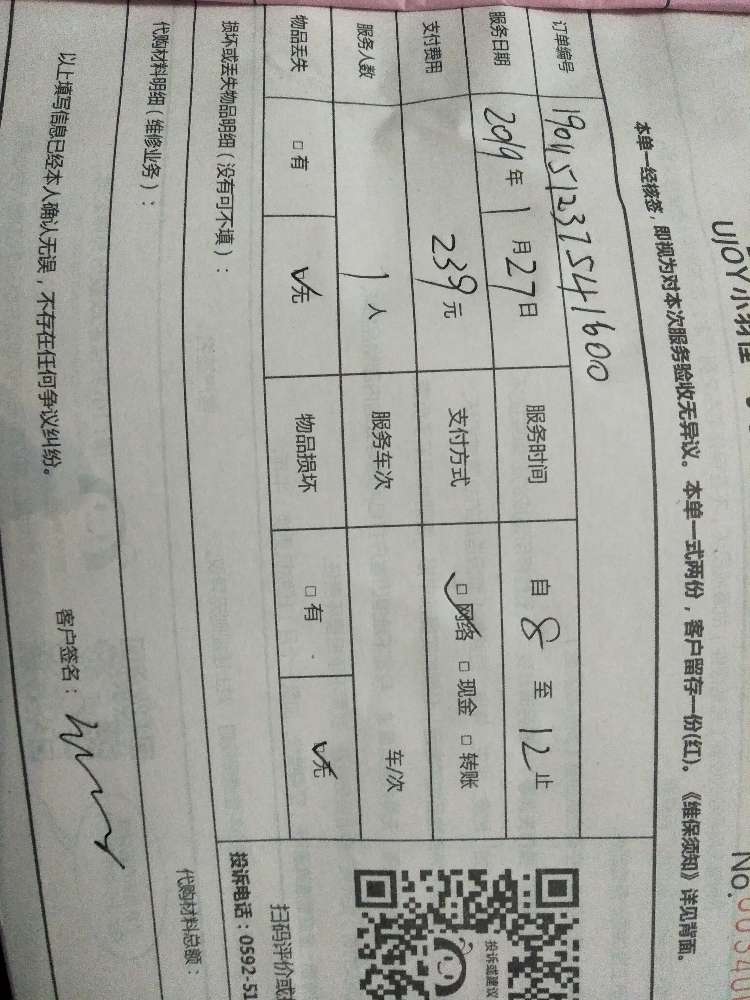 UJOY小羽佳
No.
本单一经核签，即视为对本次服务验收无异议。本单一式两份，客户留存一份(红)。《维保须知》详见背面。
订单编号 1904512337541600
服务日期 2019年1月27日 服务时间 自8至12止
支付费用 239元 支付方式 □网络 □现金 □转账
服务人数 1人 服务车次 车/次
物品丢失 □有 □无 物品损坏 □有 □无
损坏或丢失物品明细（没有可不填）：
代购材料明细（维修业务）：
代购材料总额：
以上填写信息已经本人确认无误，不存在任何争议纠纷。
客户签名：
投诉或建议
扫码评价或
投诉电话：0592-51